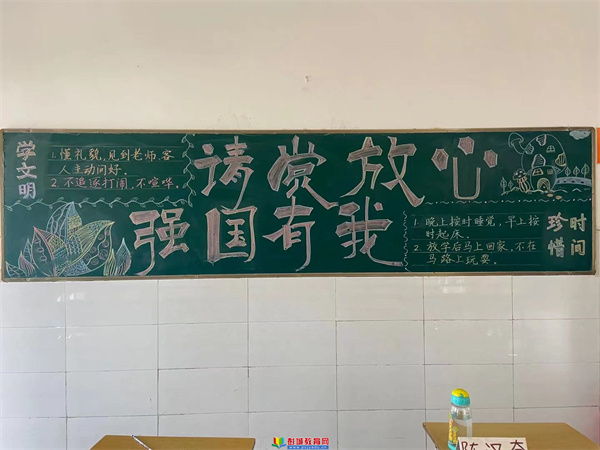 学文明
1.懂礼貌，见到老师、客
人主动问好。
2.不追逐打闹，不喧哗。
请党放心
强国有我
1.晚上按时睡觉，早上按
时起床。
2.放学后马上回家，不在
马路上玩耍。
珍惜
时间
彭城教育网